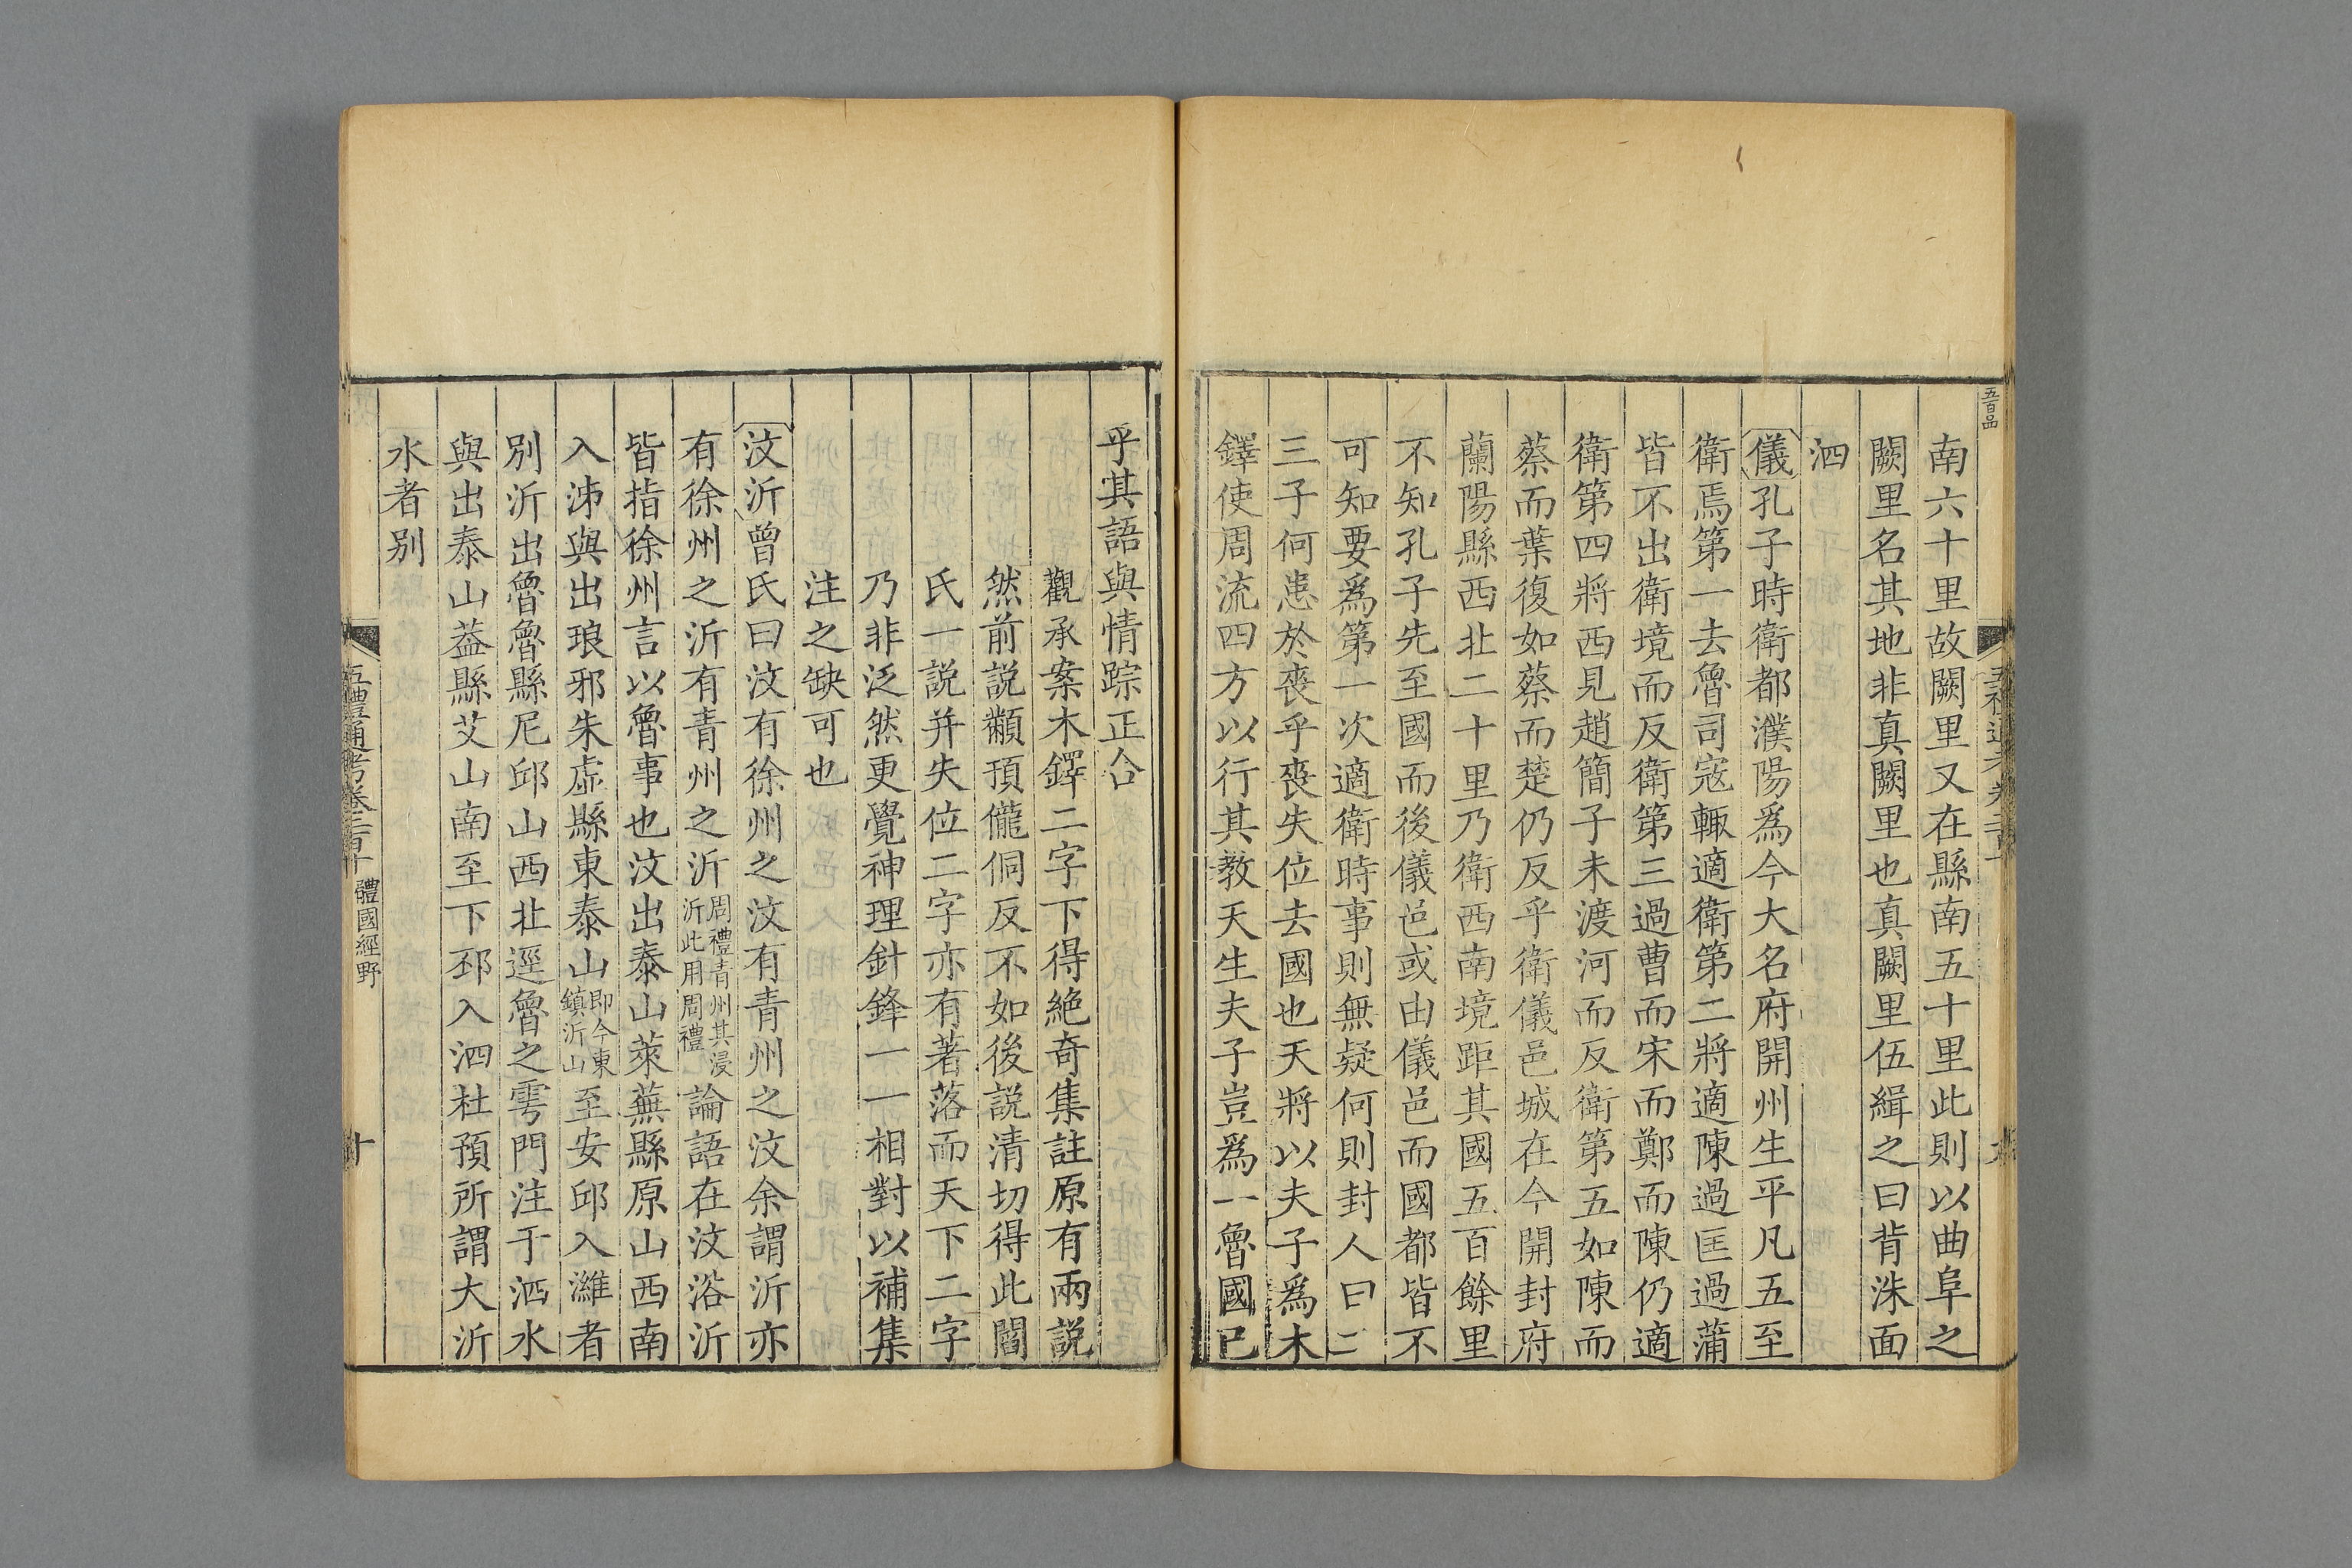 南六十里故闕里又在縣南五十里此則以曲阜之
闕里名其地非真闕里也真闕里伍緝之曰背洙面
泗
儀孔子時衛都濮陽爲今大名府開州生平凡五至
衛焉第一去魯司寇輒適衛第二將適陳過匡過蒲
皆不出衛境而反衛第三過曹而宋而鄭而陳仍適
衛第四將西見趙簡子未渡河而反衛第五如陳而
蔡而葉復如蔡而楚仍反乎衛儀邑城在今開封府
蘭陽縣西北二十里乃衛西南境距其國五百餘里
不知孔子先至國而後儀邑或由儀邑而國都皆不
可知要爲第一次適衛時事則無疑何則封人曰二
三子何患於喪乎喪失位去國也天將以夫子爲木
鐸使周流四方以行其教天生夫子豈爲一魯國已
乎其語與情踪正合
觀承案木鐸二字下得絶奇集註原有兩説
然前説顢頇儱侗反不如後説清切得此閻
氏一説并失位二字亦有著落而天下二字
乃非泛然更覺神理針鋒一一相對以補集
注之缺可也
汶沂曾氏曰汶有徐州之汶有青州之汶余謂沂亦
有徐州之沂有青州之沂周禮青州其浸沂此用周禮論語在汶浴沂
皆指徐州言以魯事也汶出泰山萊蕪縣原山西南
入泲與出琅邪朱虛縣東泰山即今東鎮沂山至安邱入濰者
別沂出魯魯縣尼邱山西北逕魯之雩門注于泗水
與出泰山葢縣艾山南至下邳入泗杜預所謂大沂
水者别
五禮通考卷二百十
體國經野
十